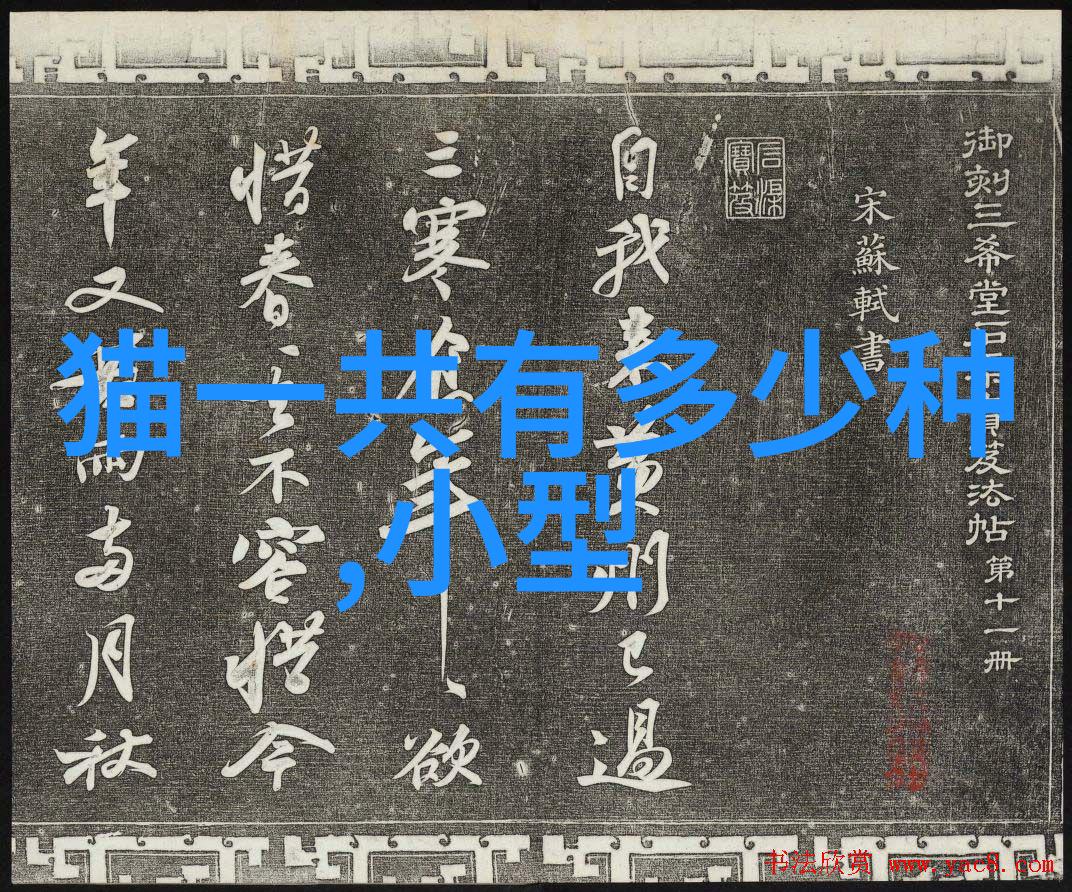 猫一共有多少种
,小型
御刻三希堂石渠寶笈法帖 第十一冊
宋蘇軾書
石渠寶笈
自我来黄州已過
三寒食年〻欲
惜春〻去不容惜今
年又苦雨两月秋
书法欣赏 www.yac8.com